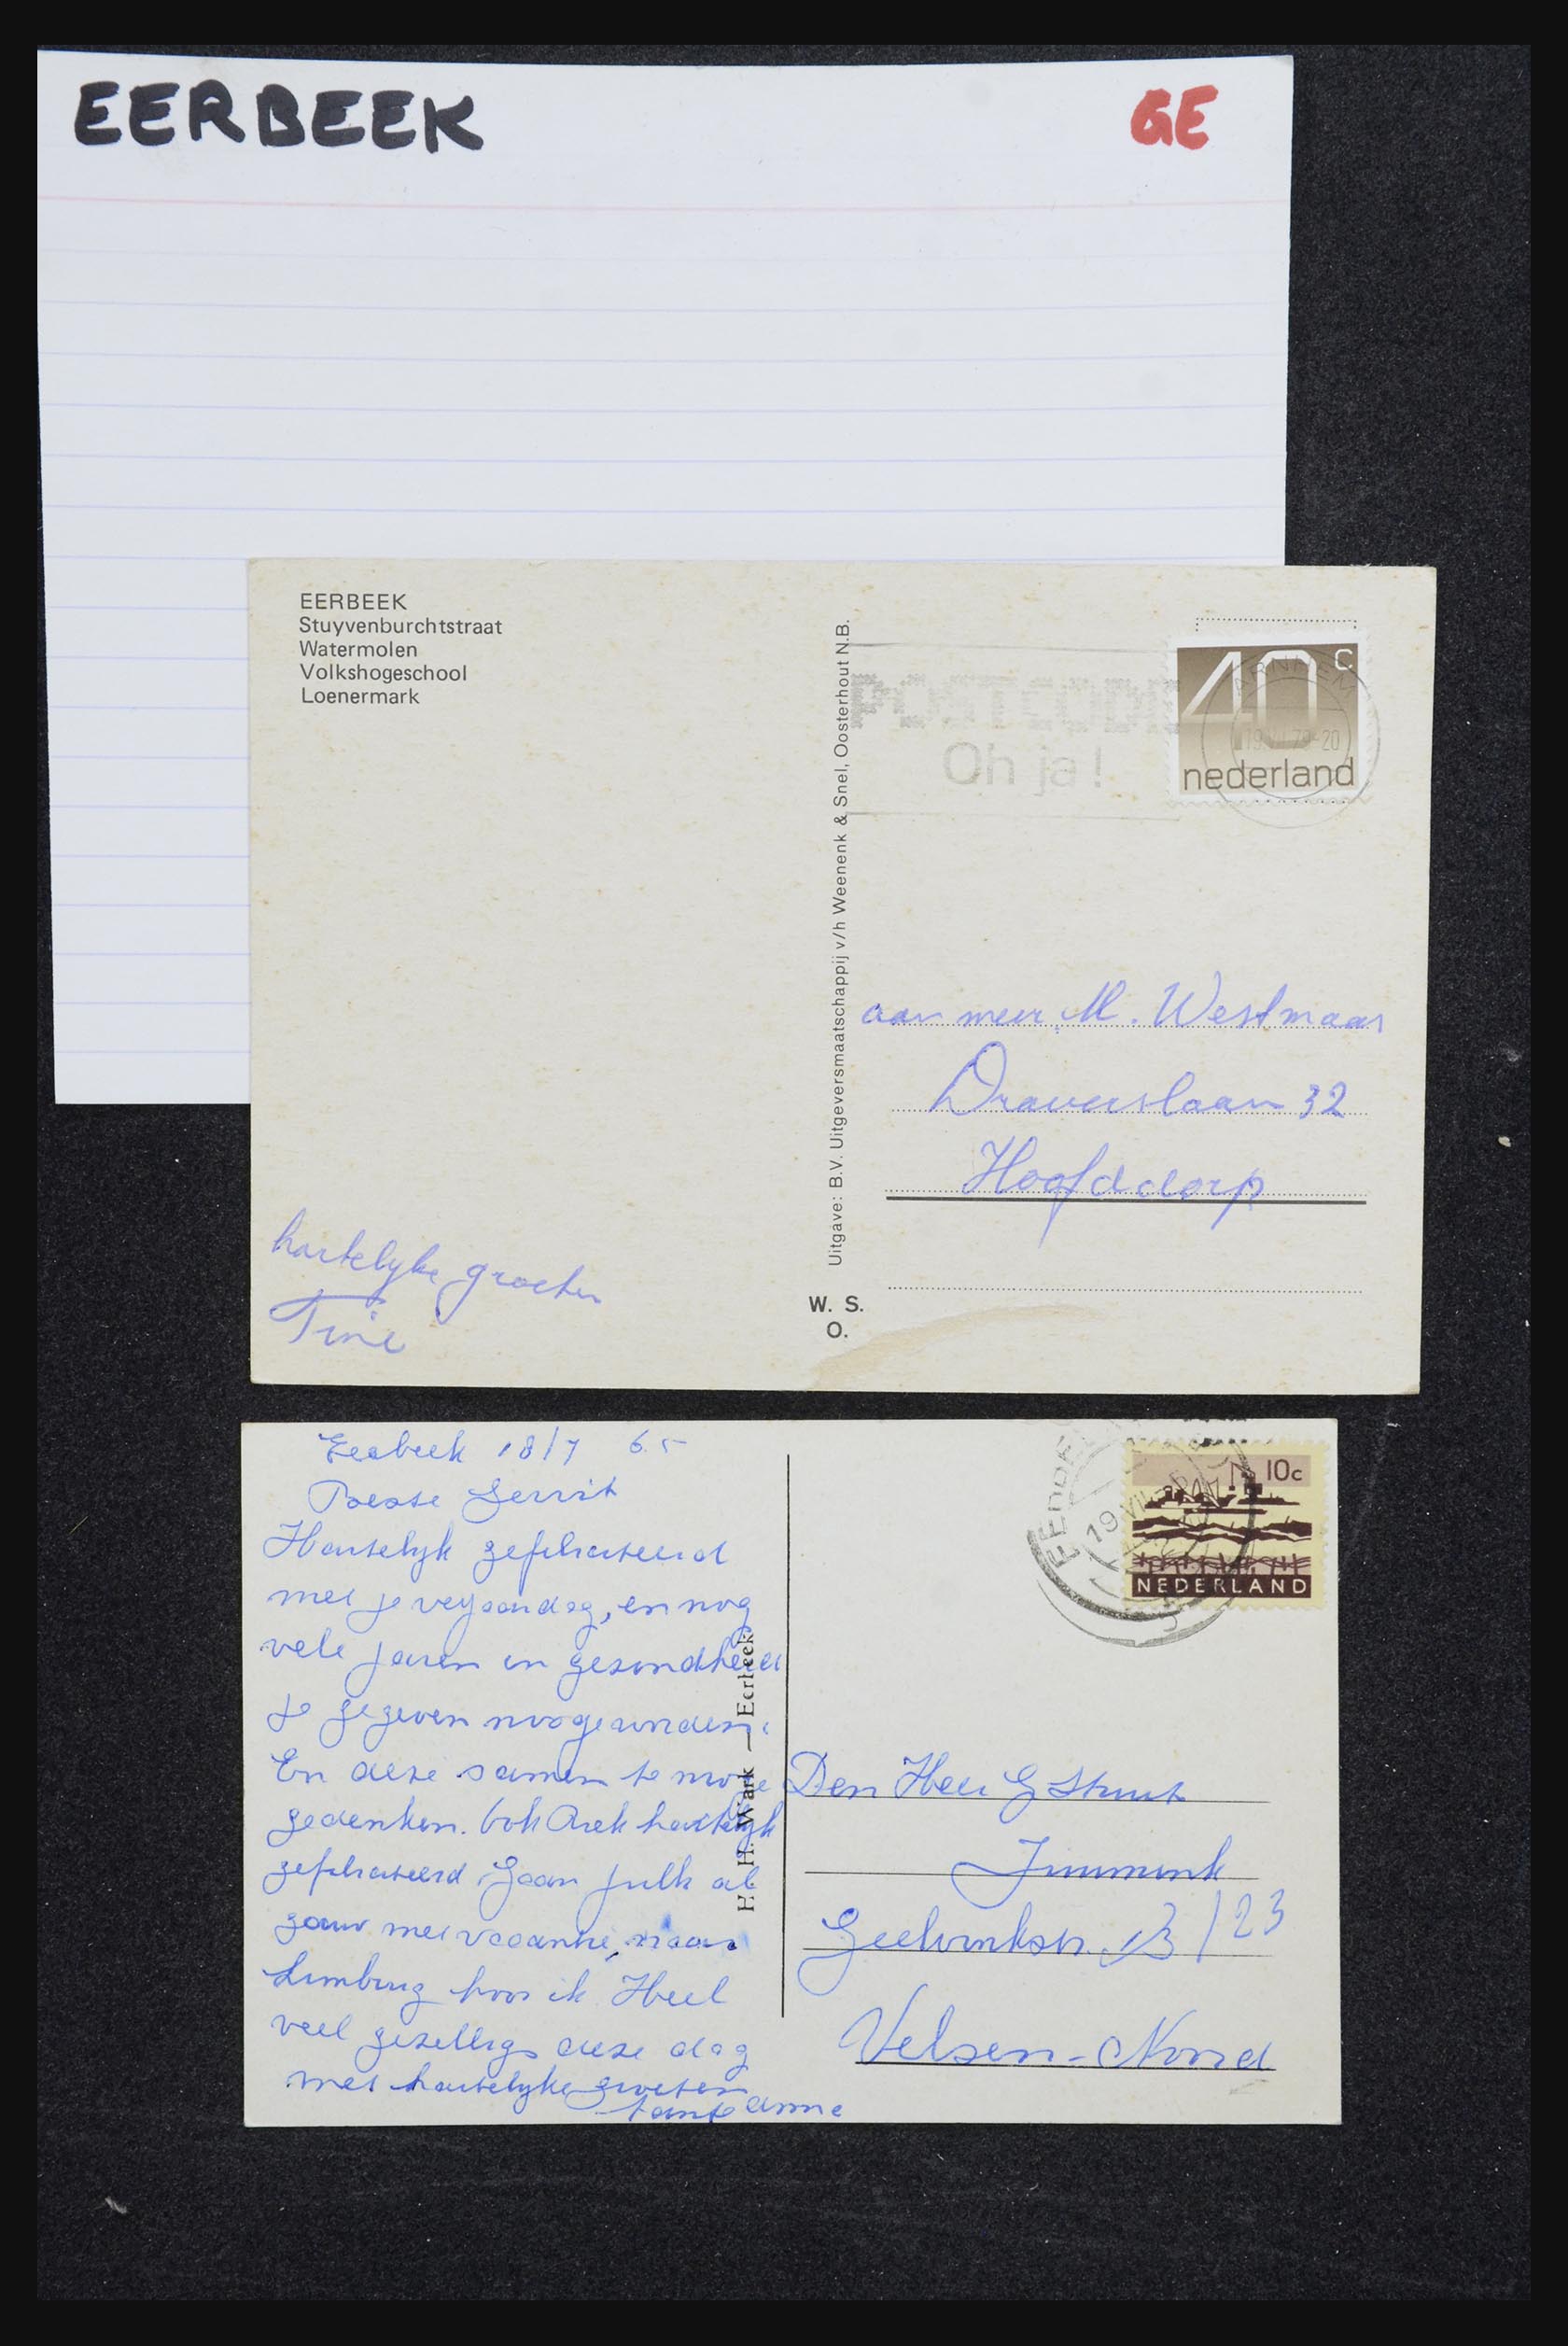 EERBEEK GE
EERBEEK
Stuyvenburchtstraat
Watermolen
Volkshogeschool
Loenermark
Uitgave: B.V. Uitgeversmaatschappij v/h Weenenk & Snel, Oosterhout N.B.
POSTCODE
Oh ja!
40 c
nederland
ARNHEM
aan meur M. Westmaas
Draverslaan 32
Hoofddorp
hartelyke groeten
Tine
W. S.
O.
Eerbeek 18/7 65
Beste Gerrit
Hartelyk gefeliciteerd
met je verjaardag, en nog
vele jaren in gezondheid
je gegeven moge worden.
En deze samen te moge
gedenken. Ook Riek hartelyk
gefeliciteerd Gaan jullie al
gauw met vacantie, naar
Limburg hoor ik Heel
veel gezelligs deze dag
met hartelyke groeten
tante anne
H. H. Wark — Eerbeek
10c
NEDERLAND
19 VII
Den Heer G Struik
Geelvinkstr. 13 / 23
Velsen-Noord